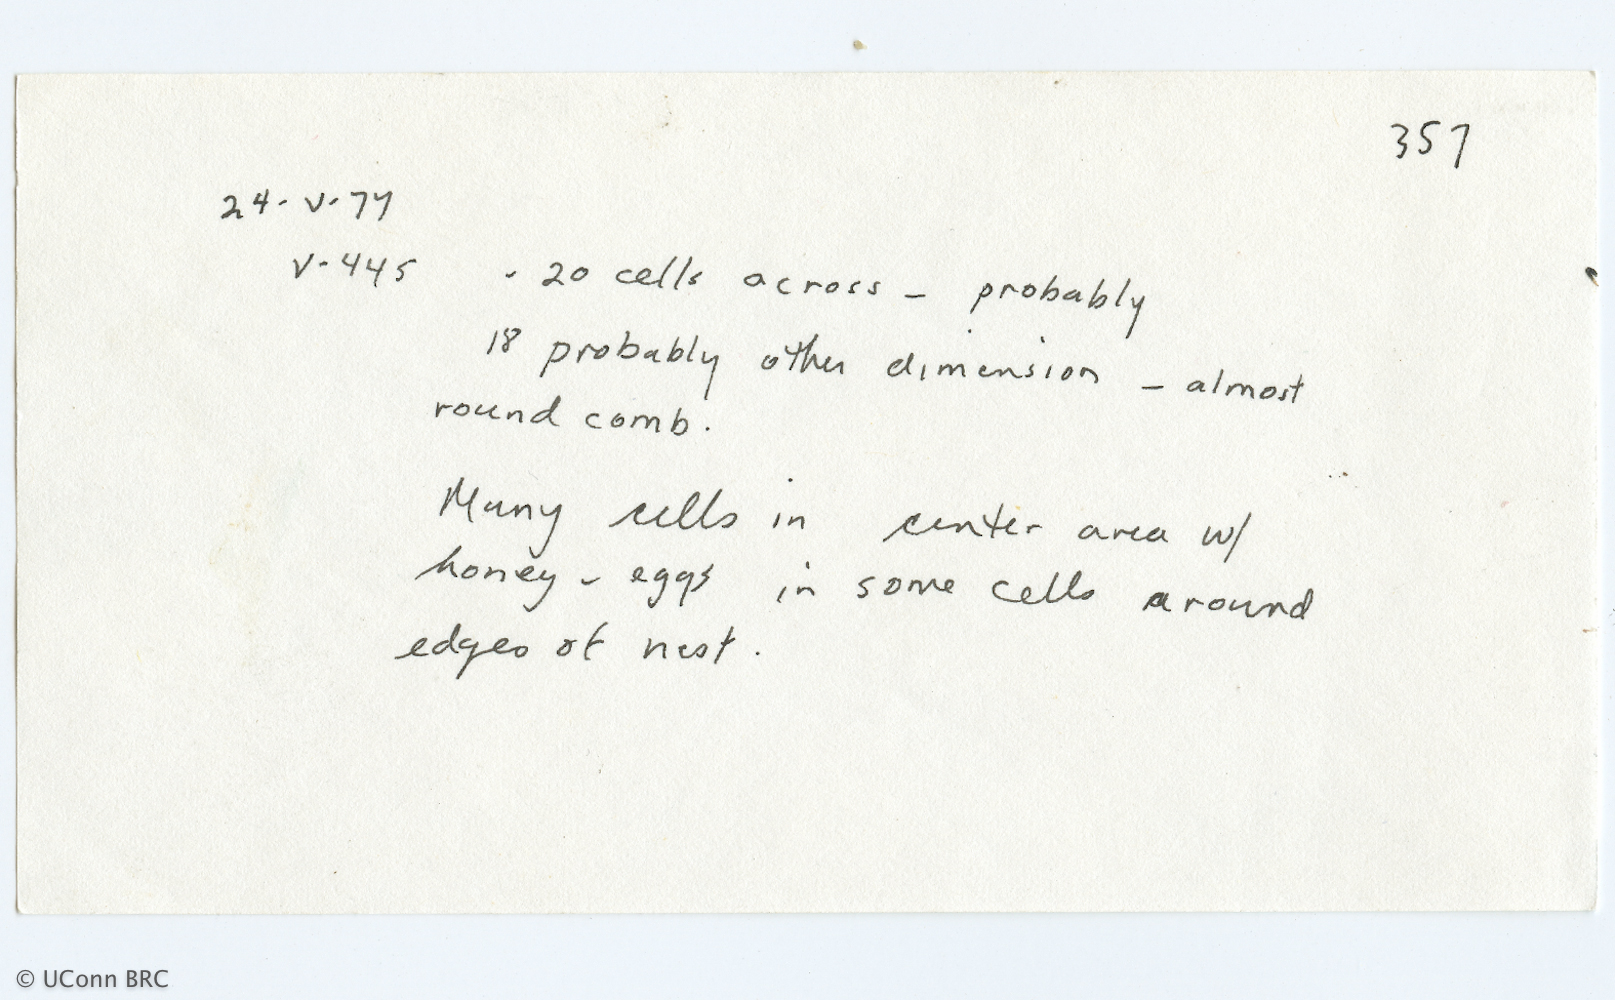 357
24-V-77
V-445 - 20 cells across - probably
18 probably other dimension - almost
round comb.
Many cells in center area w/
honey - eggs in some cells around
edges of nest.
© UConn BRC